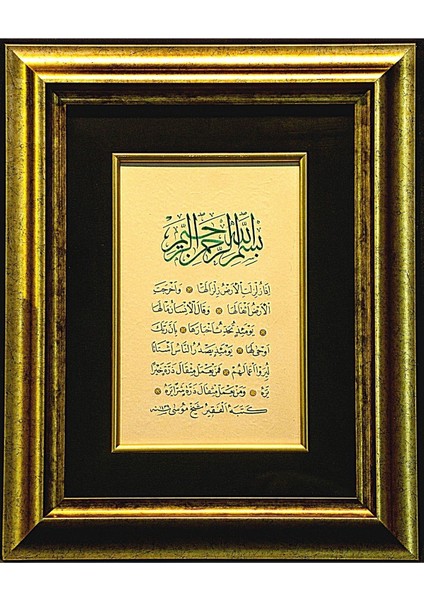 بسم الله الرحمن الرحيم
اذا زلزلت الارض زلزالها واخرجت
الارض اثقالها وقال الانسان مالها
يومئذ تحدث اخبارها بان ربك
اوحى لها يومئذ يصدر الناس اشتاتا
ليروا اعمالهم فمن يعمل مثقال ذرة خيرا
يره ومن يعمل مثقال ذرة شرا يره
كتبه الفقير شيخ موسى